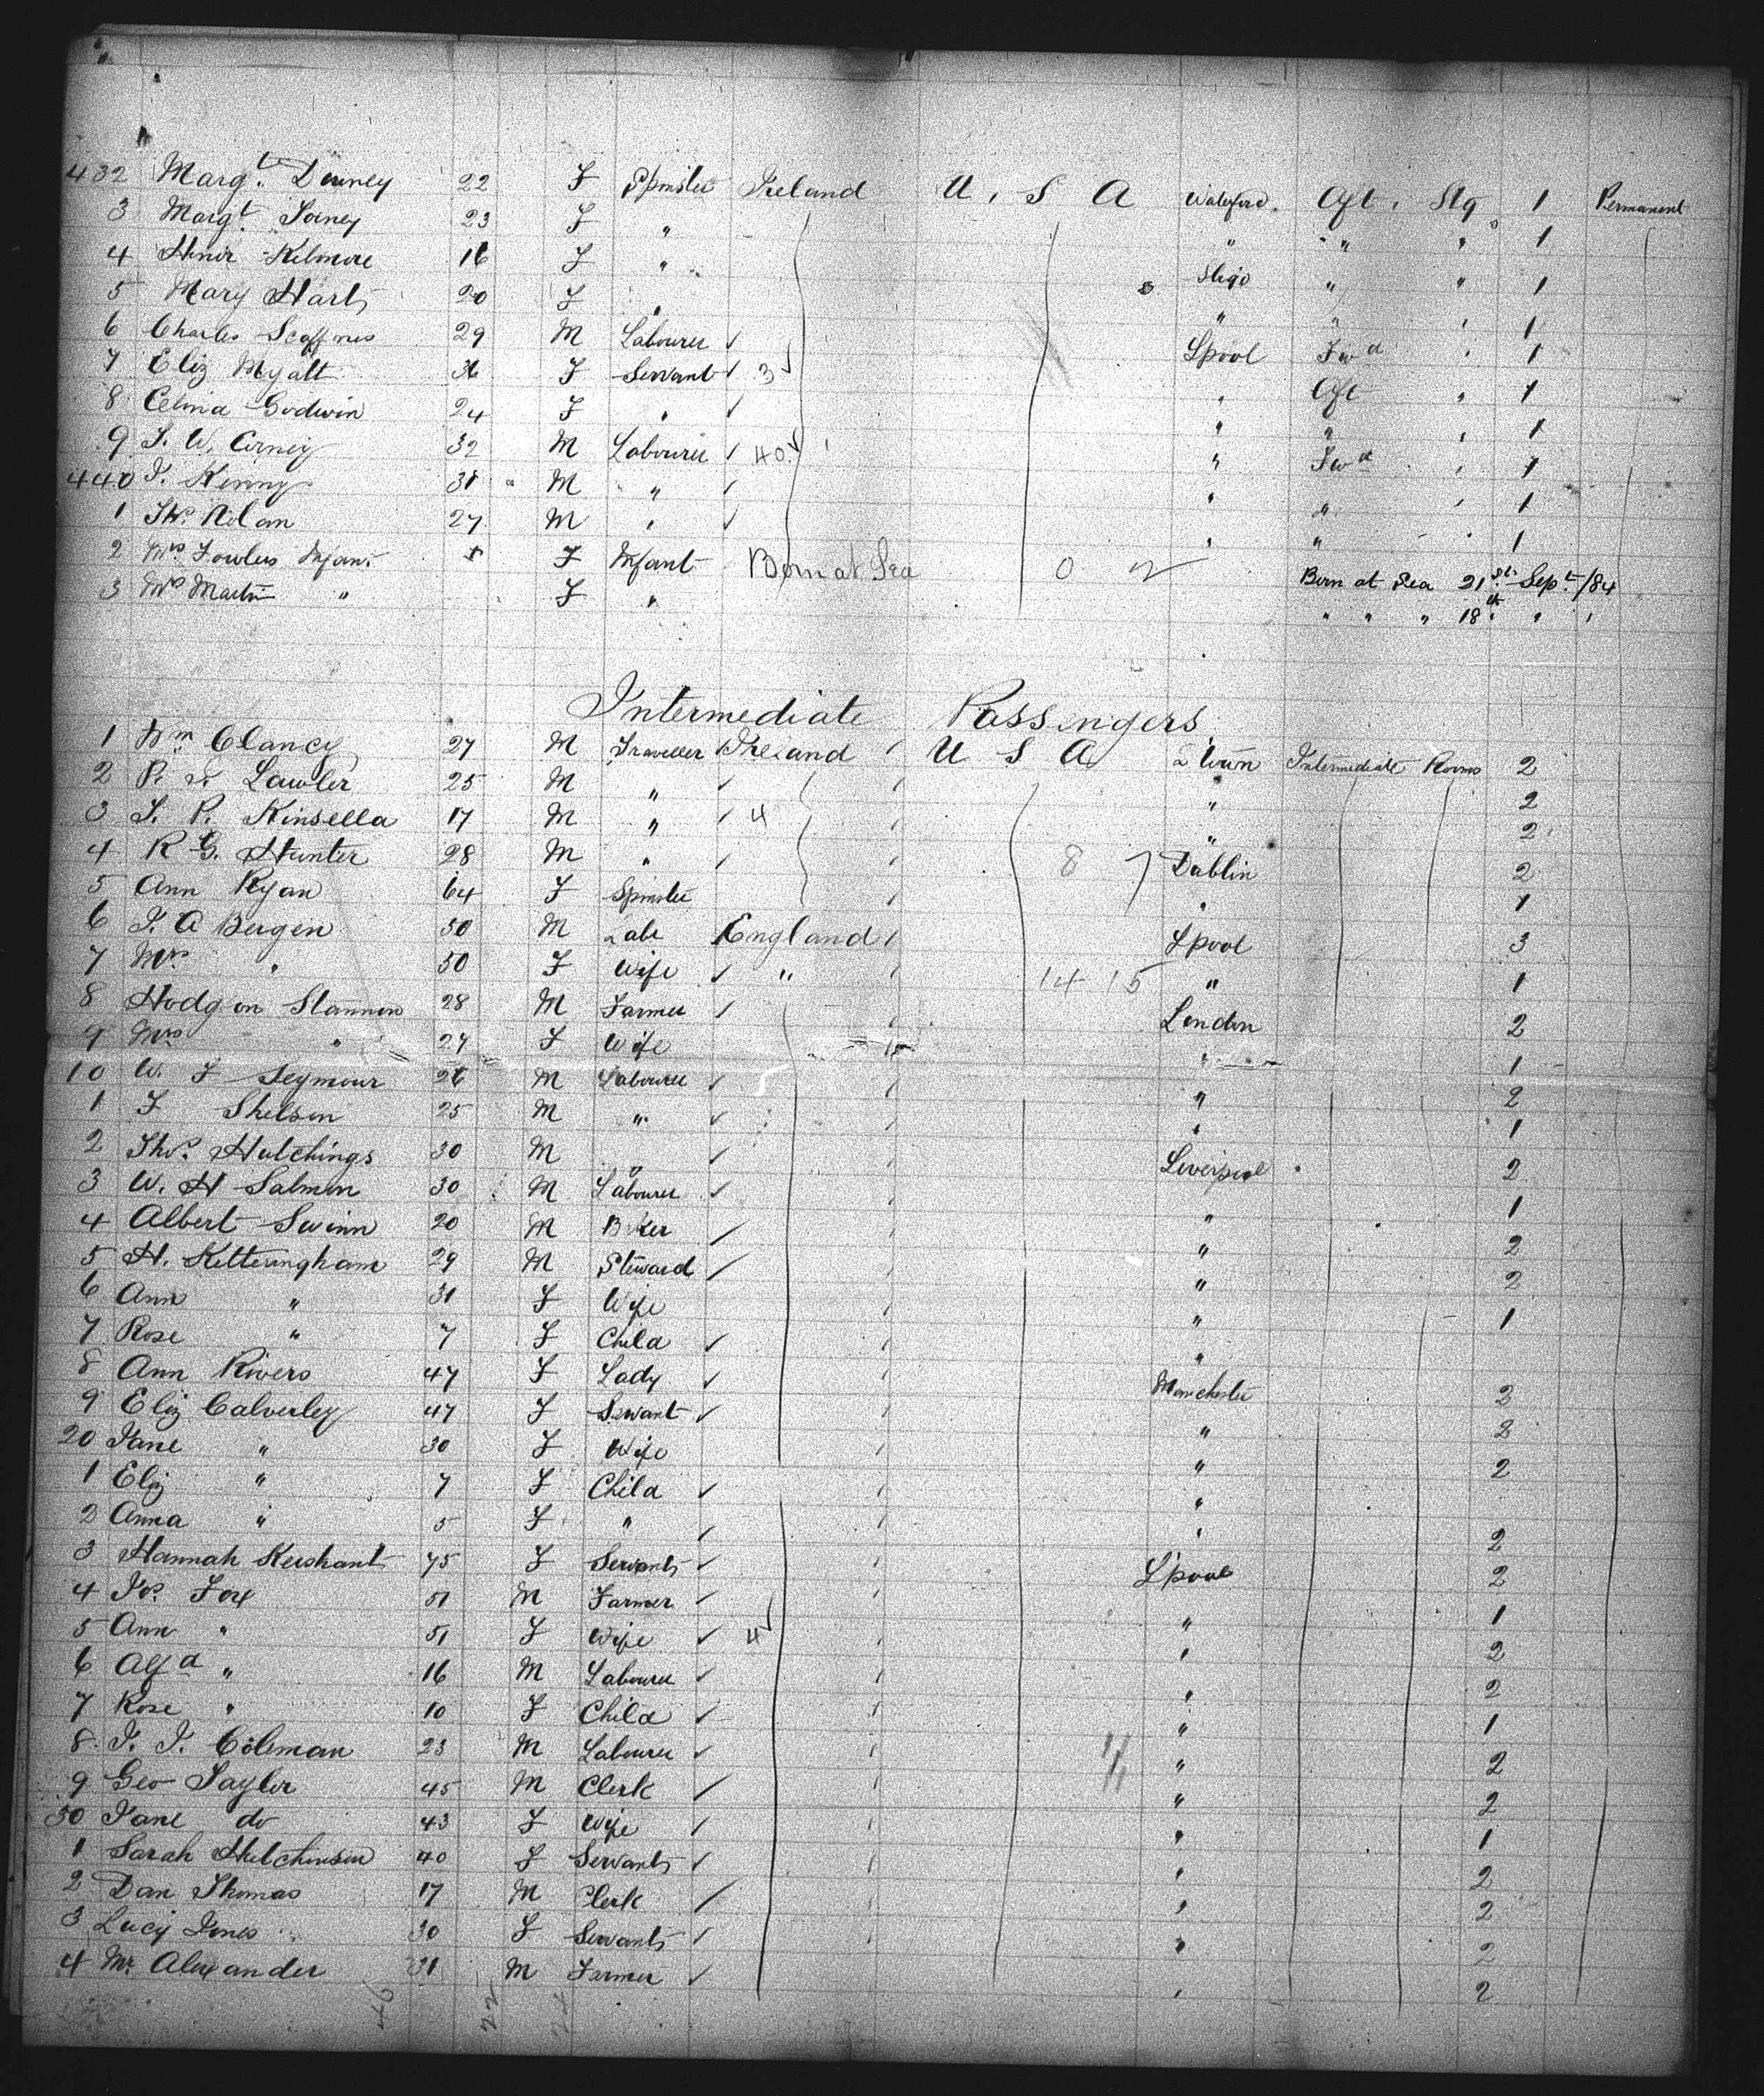 432 Margt. Downey 22 F Spinster Ireland U. S A Waterford Aft. Stg 1 Permanent
3 Margt. 23 F " " " " 1
4 Kilmore 16 F " Sligo " " 1
5 Mary Harts 20 F " " " " 1
6 Charles 29 M Labourer L'pool Fwd " 1
7 Eliz Myatt 36 F Servant 3 " Aft " 1
8 Celina Godwin 24 F " " " " 1
9 W. 32 M Labourer 40 " Fwd " 1
440 Kenny 31 M " " " " 1
1 Thos. Nolan 27 M " " " " 1
2 Mrs Fowlers Infant F Infant Born at Sea 0 Born at Sea 21st Sept. /84
3 Mrs Martin " F " " " " 18th " "
Intermediate Passengers
1 Wm Clancy 27 M Traveller Ireland U S A Q Town Intermediate Rooms 2
2 P. Lawler 25 M " " 2
3 P. Kinsella 17 M " 4 " 2
4 R G. Hunter 28 M " 8 Dublin 2
5 Ann Ryan 64 F Spinster " 1
6 J. A Bergen 50 M Labr England L'pool 3
7 Mrs " 50 F Wife " 14 15 " 1
8 28 M Farmer London 2
9 Mrs " 27 F Wife " 1
10 W. F Seymour 26 M Labourer " 2
1 F Shelson 25 M " " 1
2 Thos. Hutchings 30 M " Liverpool 2
3 W. H Salmon 30 M Labourer " 1
4 Albert Swinn 20 M Baker " 2
5 H. Ketteringham 29 M Steward " 2
6 Ann " 31 F Wife " 1
7 Rose " 7 F Child "
8 Ann Rivers 47 F Lady Manchester 2
9 Eliz Calverley 47 F Servant " 2
20 Jane " 30 F Wife " 2
1 Eliz " 7 F Child "
2 Anna " 5 F " " 2
3 Hannah 75 F Servant L'pool 2
4 Jos. Fox 51 M Farmer " 1
5 Ann " 51 F Wife 4 " 2
6 Alfd " 16 M Labourer " 2
7 Rose " 10 F Child " 1
8 J. J. Coleman 23 M Labourer " 2
9 Geo Taylor 45 M Clerk " 2
30 Jane do 43 F Wife " 1
1 Sarah Hutchinson 40 F Servant " 2
2 Dan Thomas 17 M Clerk " 2
3 Lucy Jones 30 F Servant " 2
4 Mr. Alexander 31 M Farmer " 2
46 22 24